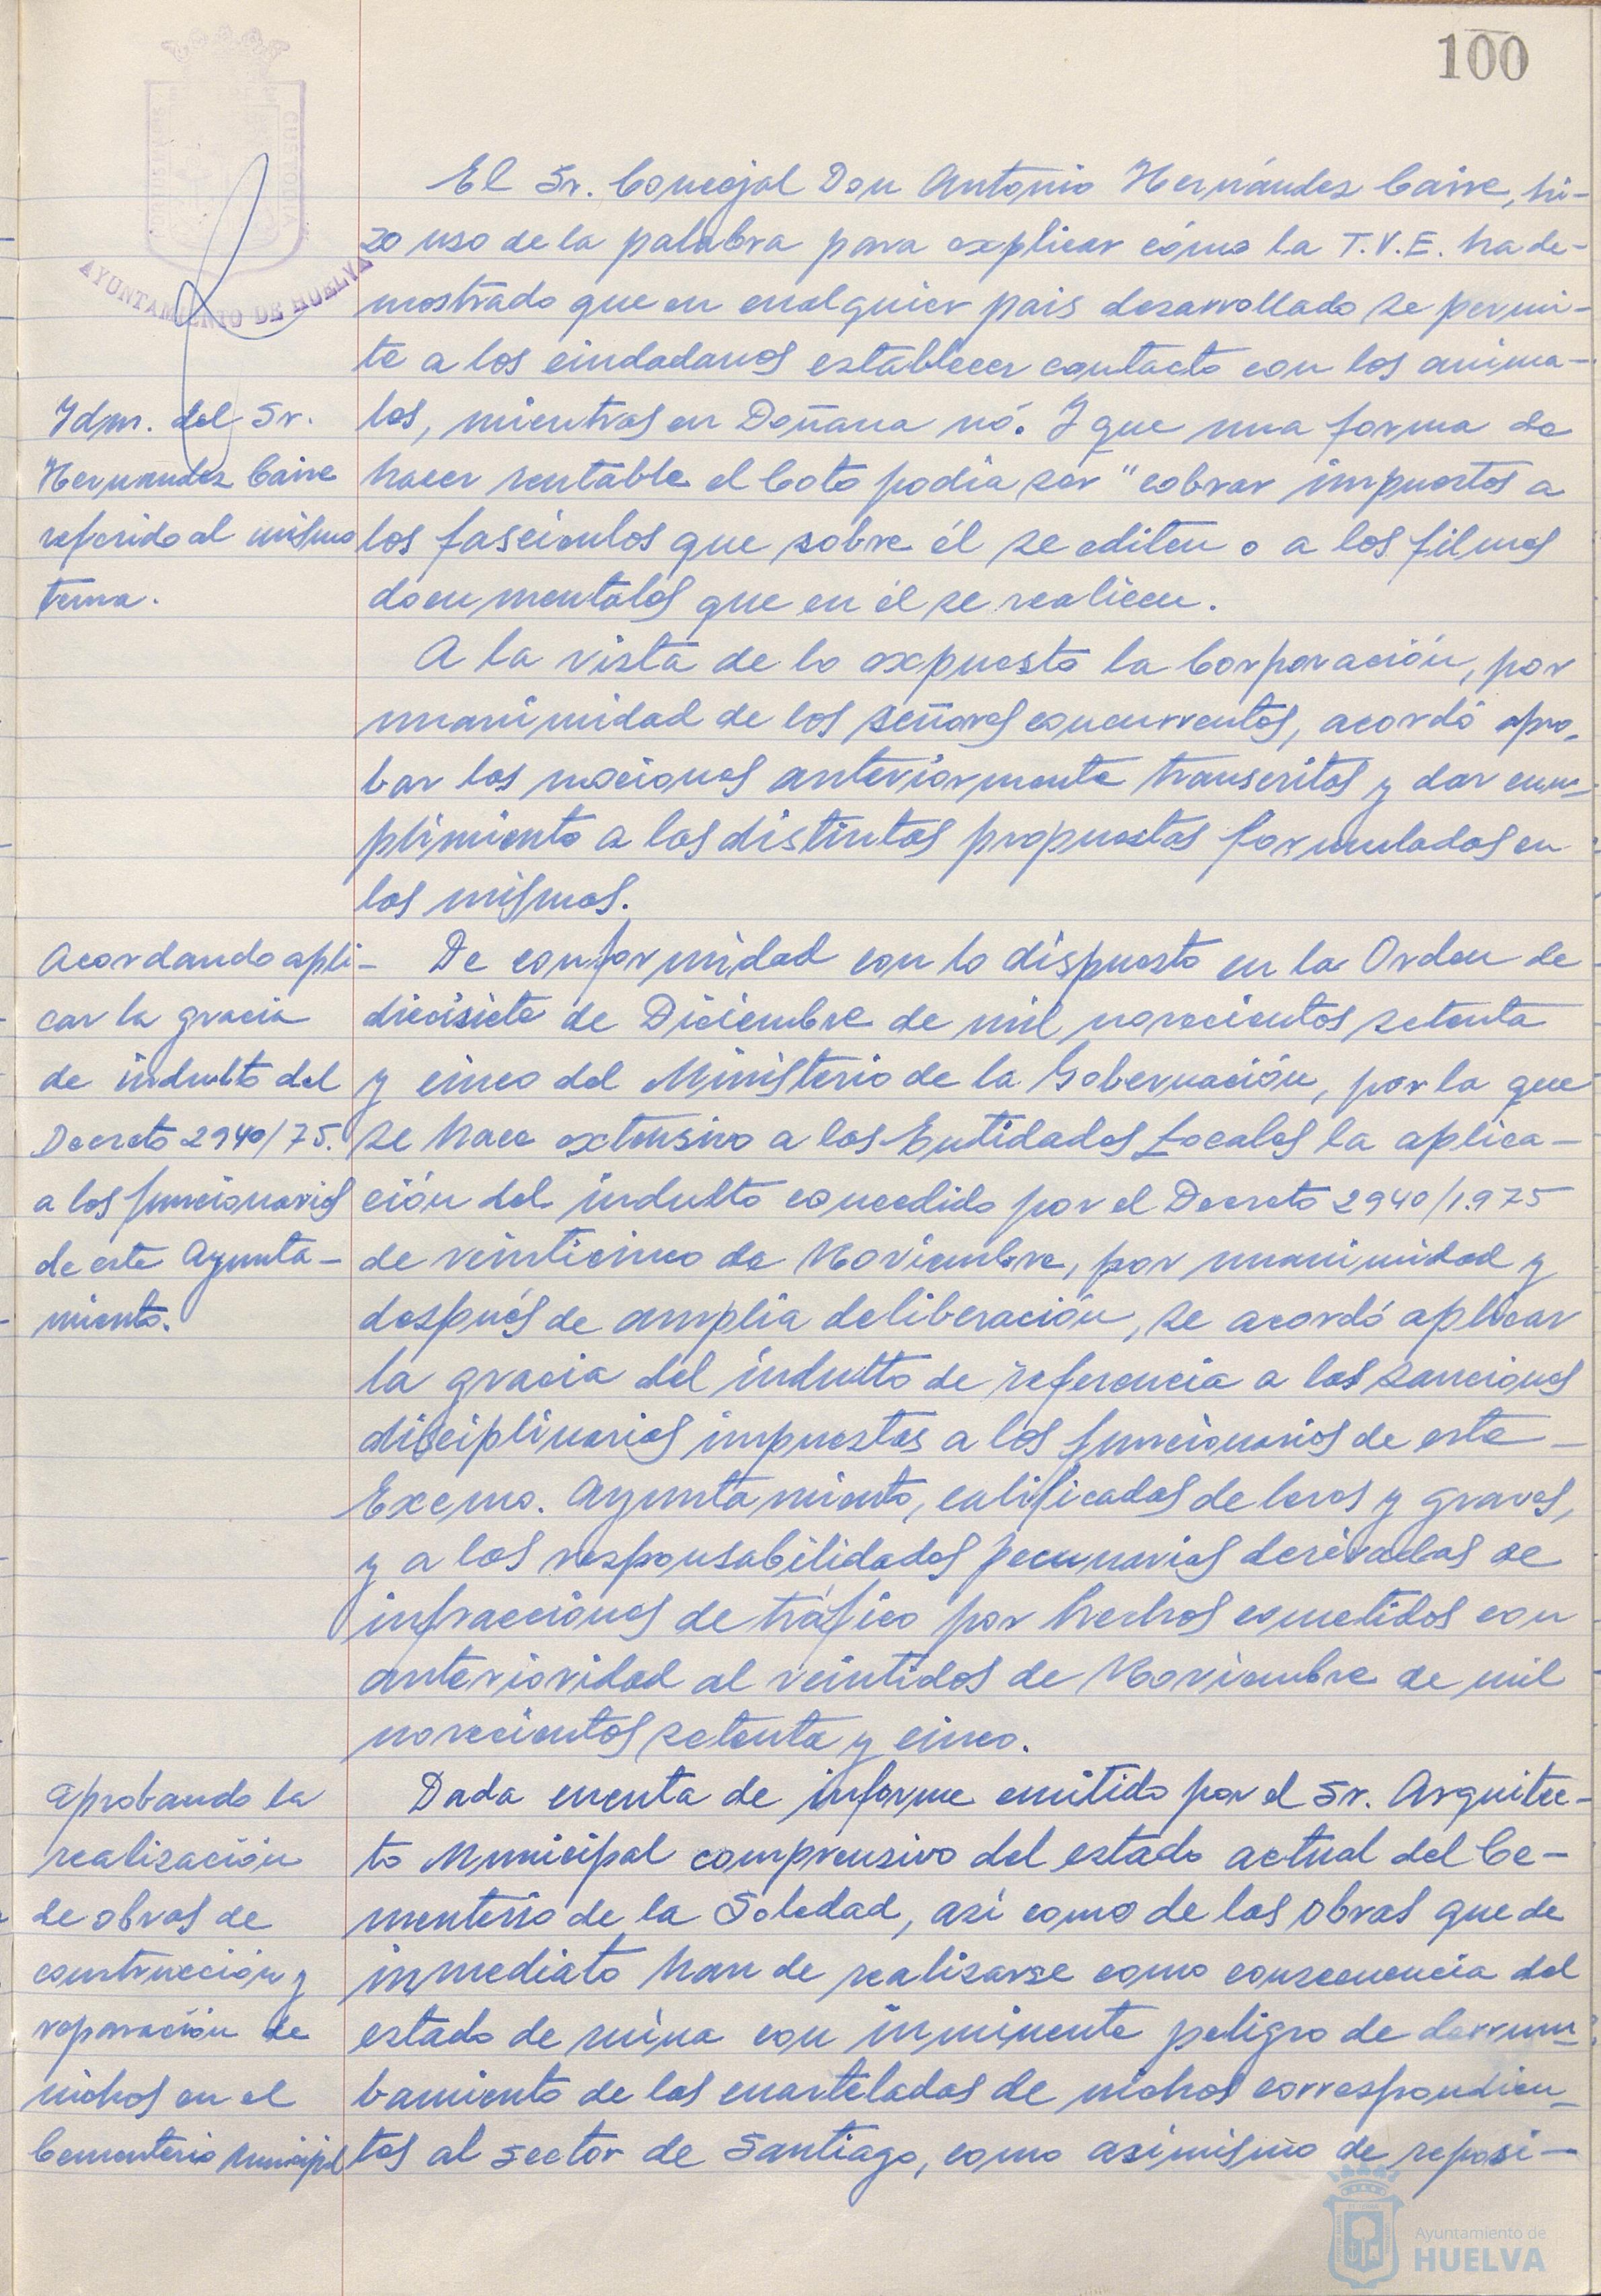 100
PORTUS MARIS
CUSTODIA
AYUNTAMIENTO DE HUELVA
El Sr. Concejal Don Antonio Hernández Caire, hi-
zo uso de la palabra para explicar cómo la T.V.E. ha de-
mostrado que en cualquier pais desarrollado se permi-
te a los ciudadanos establecer contacto con los anima-
les, mientras en Doñana nó. Y que una forma de
hacer rentable el Coto podia ser "cobrar impuestos a
los fasciculos que sobre él se editen o a los filmes
documentales que en él se realicen.
Idm. del Sr.
Hernandez Caire
referido al mismo
tema.
A la vista de lo expuesto la Corporación, por
unanimidad de los señores concurrentes, acordó apro-
bar las mociones anteriormente transcritas y dar cum-
plimiento a las distintas propuestas formuladas en
las mismas.
Acordando apli-
car la gracia
de indulto del
Decreto 2940/75.
a los funcionarios
de este Ayunta-
miento.
De conformidad con lo dispuesto en la Orden de
diecisiete de Diciembre de mil novecientos setenta
y cinco del Ministerio de la Gobernación, por la que
se hace extensivo a las Entidades Locales la aplica-
ción del indulto concedido por el Decreto 2940/1.975
de veinticinco de Noviembre, por unanimidad y
después de amplia deliberación, se acordó aplicar
la gracia del indulto de referencia a las sanciones
disciplinarias impuestas a los funcionarios de este
Excmo. Ayuntamiento, calificadas de leves y graves,
y a las responsabilidades pecunarias derivadas de
infracciones de tráfico por hechos cometidos con
anterioridad al veintidos de Noviembre de mil
novecientos setenta y cinco.
Aprobando la
realización
de obras de
construcción y
reparación de
nichos en el
Cementerio Municipal
Dada cuenta de informe emitido por el Sr. Arquitec-
to Municipal comprensivo del estado actual del Ce-
menterio de la Soledad, asi como de las obras que de
inmediato han de realizarse como consecuencia del
estado de ruina con inminente peligro de derrum-
bamiento de las cuarteladas de nichos correspondien-
tes al Sector de Santiago, como asimismo de reposi-
Ayuntamiento de
HUELVA